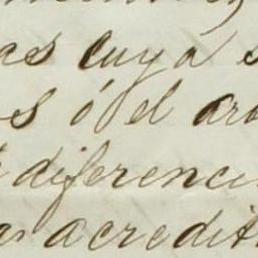 as cuya s
s ó el arb
diferenci
as acredit